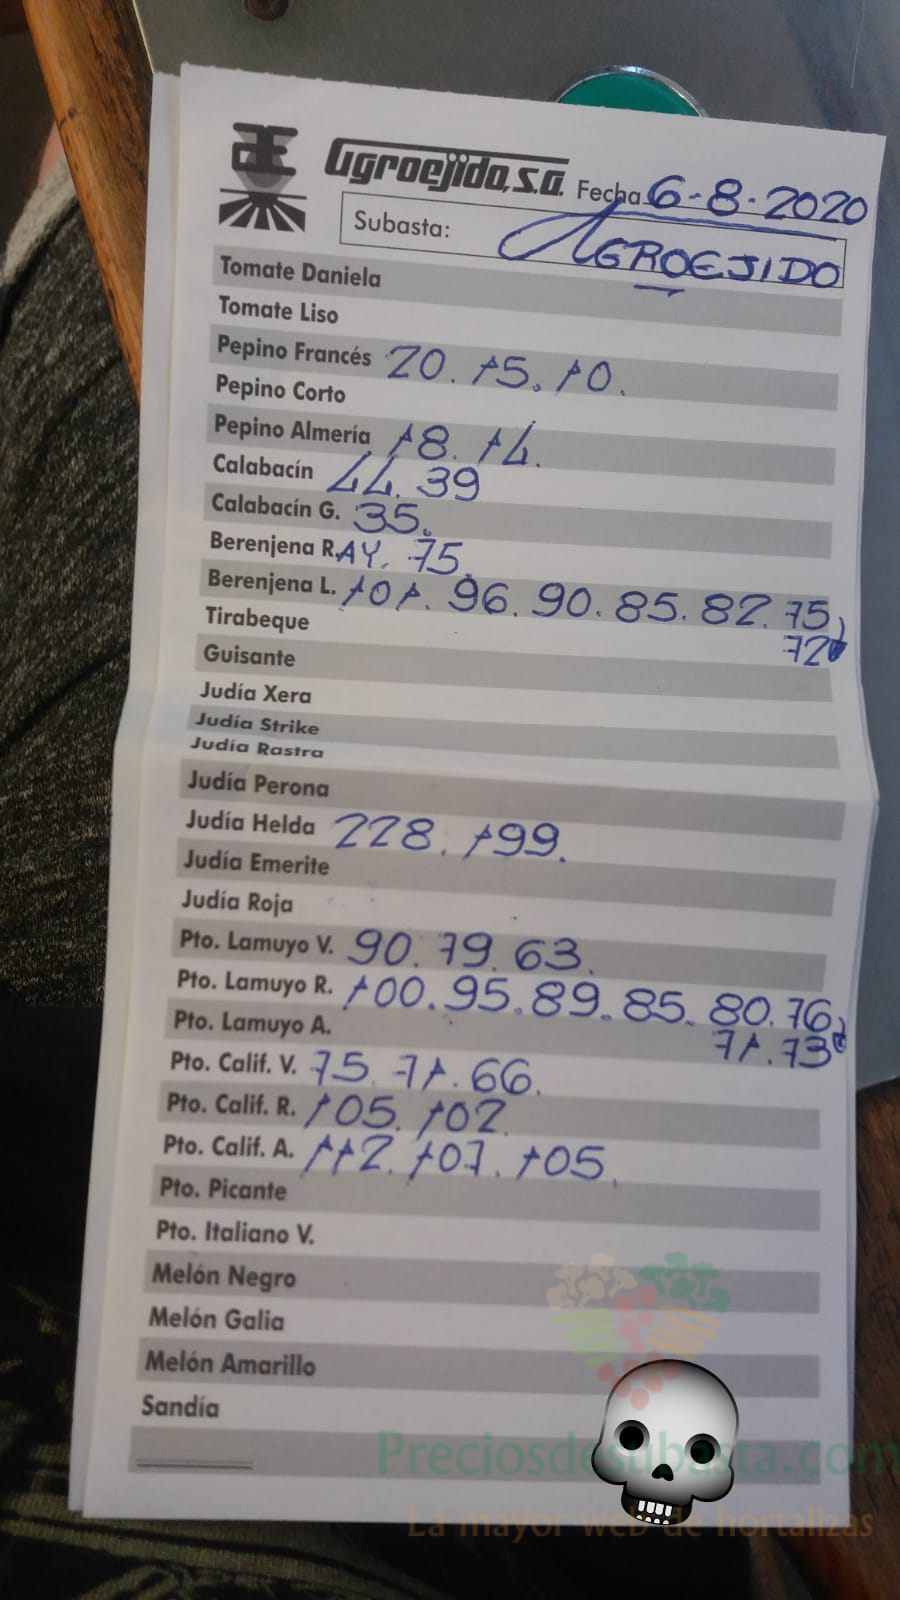 Æ Agroejido, S.A. Fecha 6-8-2020
Subasta: AGROEJIDO
Tomate Daniela
Tomate Liso
Pepino Francés 20. 15. 10.
Pepino Corto
Pepino Almería 18. 14.
Calabacín 44. 39
Calabacín G. 35.
Berenjena R. AY. 75.
Berenjena L. 101. 96. 90. 85. 82. 75,
Tirabeque 72
Guisante
Judía Xera
Judía Strike
Judía Rastra
Judía Perona
Judía Helda 228. 199.
Judía Emerite
Judía Roja
Pto. Lamuyo V. 90. 79. 63.
Pto. Lamuyo R. 100. 95. 89. 85. 80. 76,
Pto. Lamuyo A. 71. 73
Pto. Calif. V. 75. 71. 66.
Pto. Calif. R. 105. 102.
Pto. Calif. A. 112. 107. 105.
Pto. Picante
Pto. Italiano V.
Melón Negro
Melón Galia
Melón Amarillo
Sandía
Preciosdesubasta.com
La mayor web de hortalizas